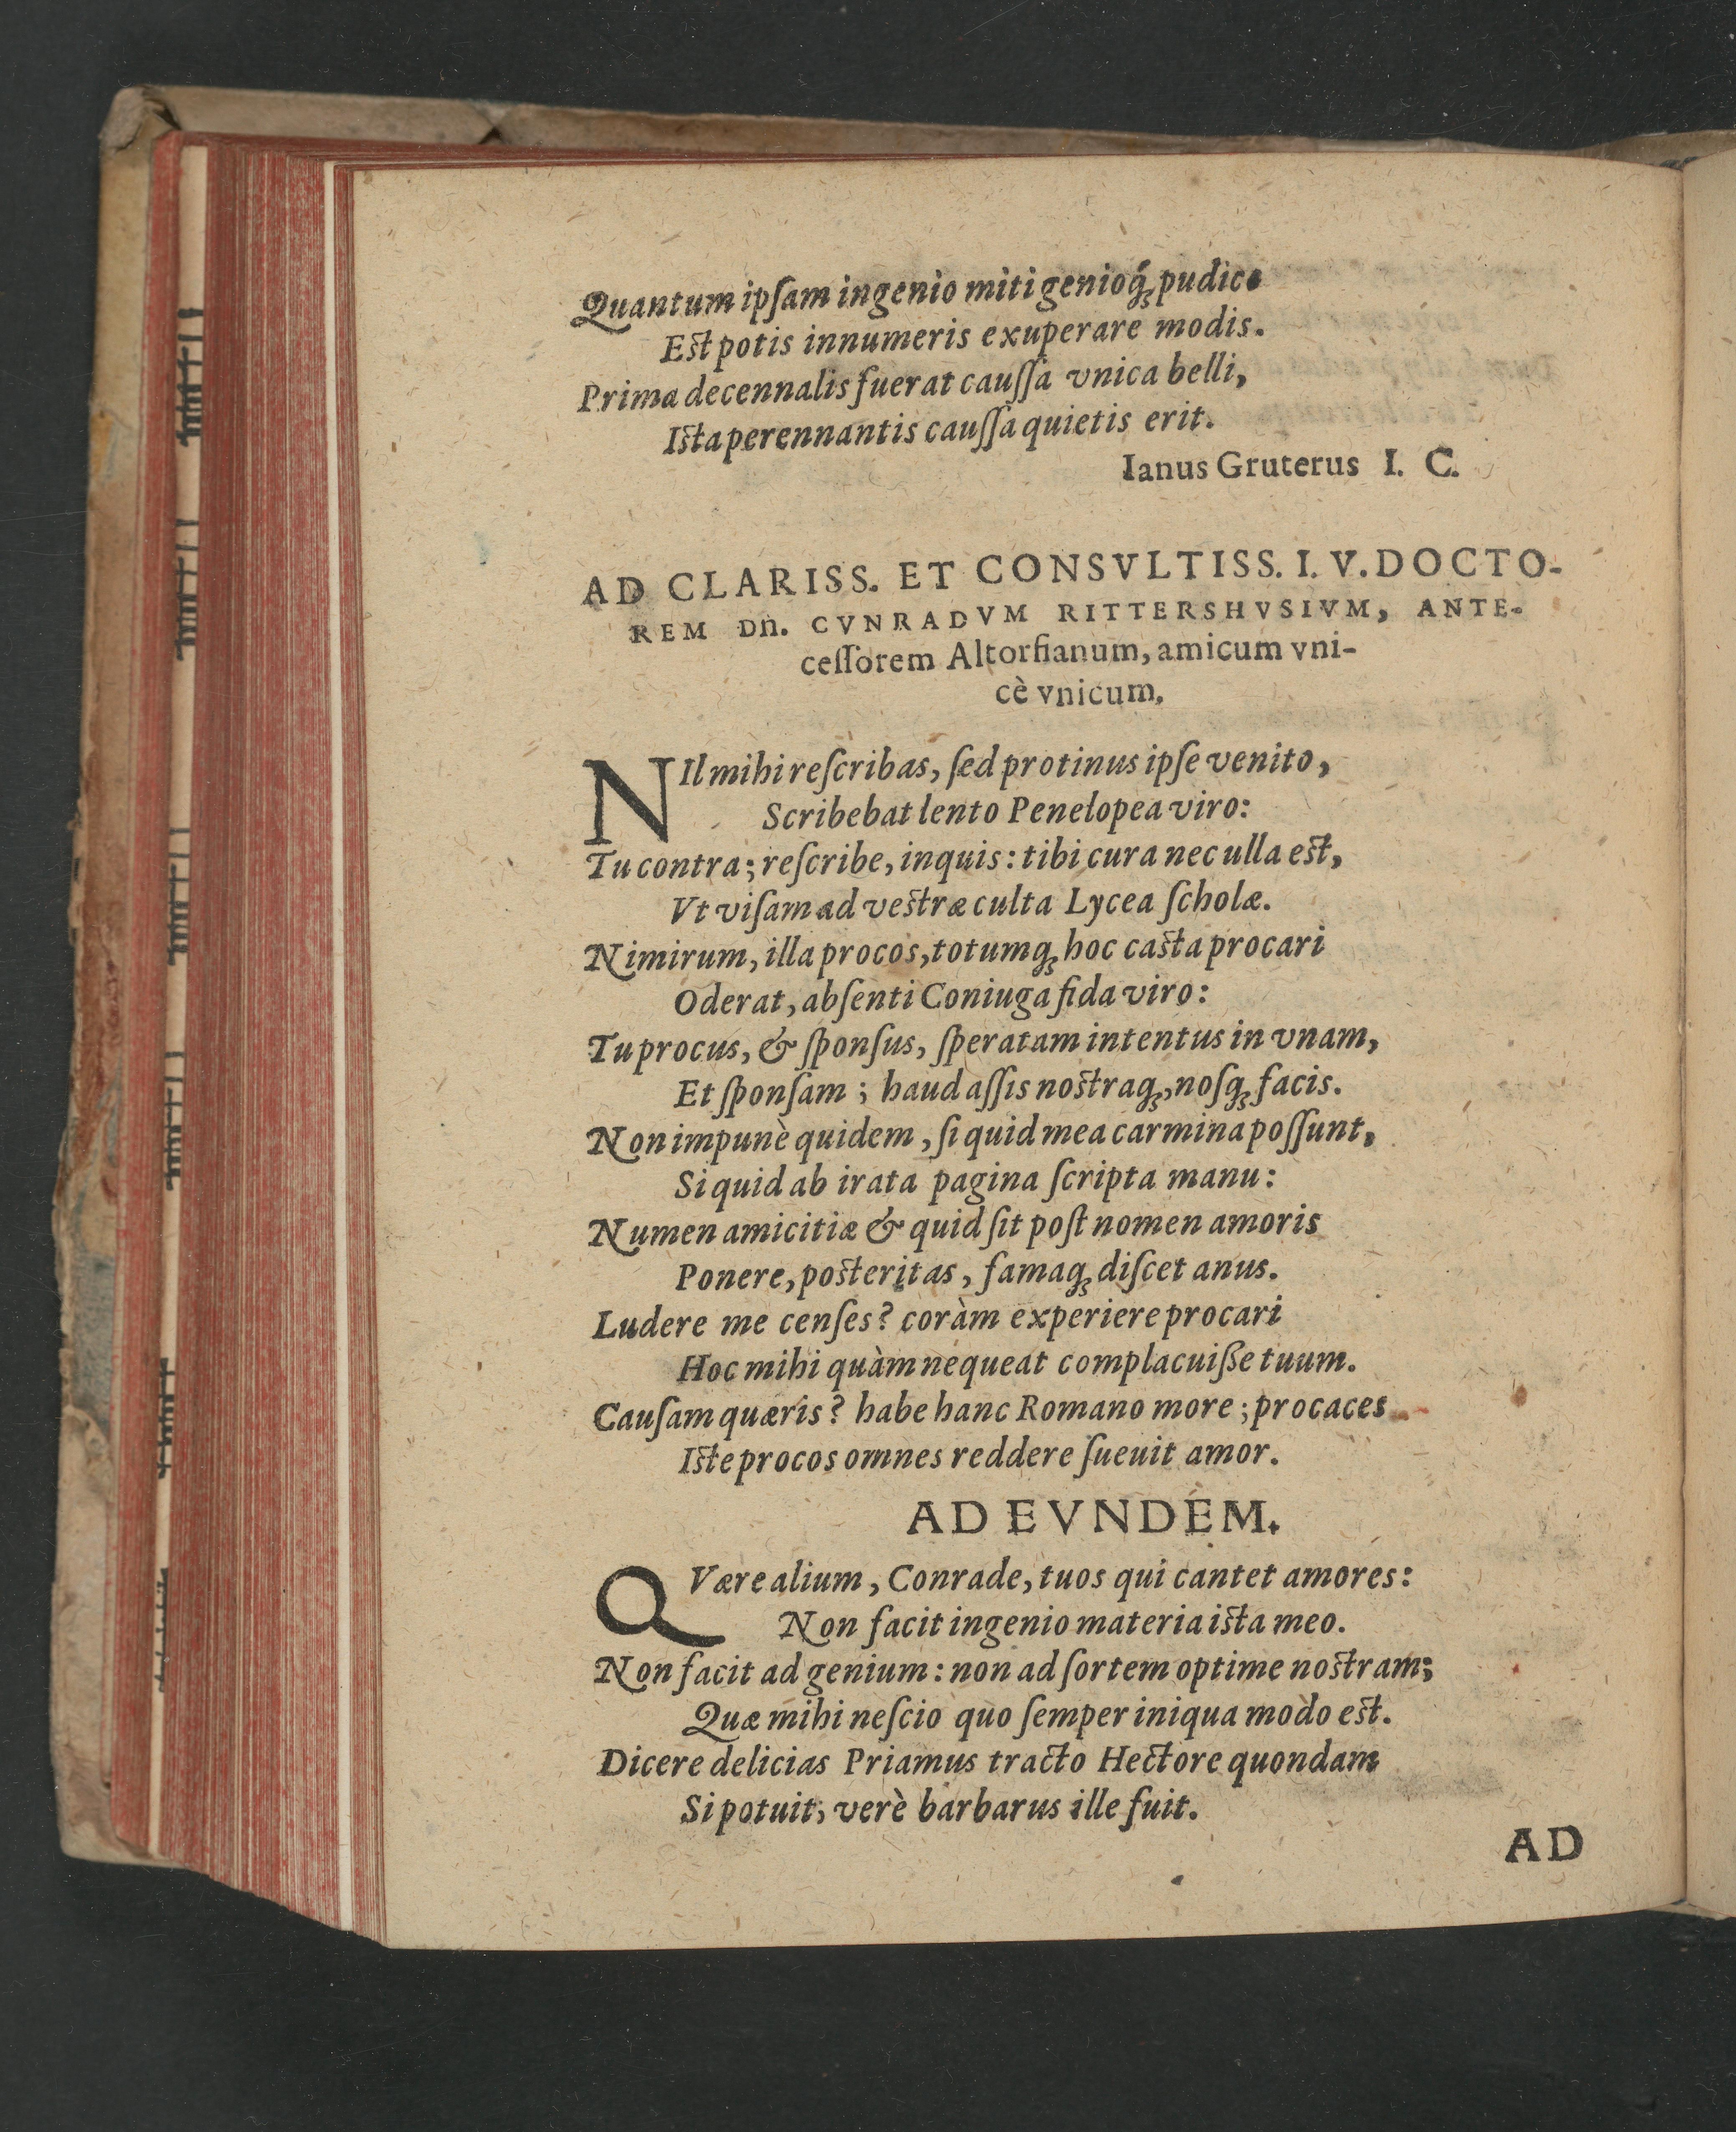 Quantum ipſam ingenio miti genioq́ꝫ pudico
Eſt potis innumeris exuperare modis.
Prima decennalis fuerat cauſſa vnica belli,
Iſta perennantis cauſſa quietis erit.
Ianus Gruterus I. C.
AD CLARISS. ET CONSVLTISS. I. V. DOCTO-
REM Dn. CVNRADVM RITTERSHVSIVM, ANTE-
ceſſorem Altorfianum, amicum vni-
cè vnicum.
NIl mihi reſcribas, ſed protinus ipſe venito,
Scribebat lento Penelopea viro:
Tu contra; reſcribe, inquis: tibi cura nec ulla eſt,
Vt viſam ad veſtræ culta Lycea ſcholæ.
Nimirum, illa procos, totumqꝫ hoc caſta procari
Oderat, abſenti Coniuga fida viro:
Tu procus, & ſponſus, ſperatam intentus in vnam,
Et ſponſam; haud aſſis noſtraqꝫ, noſqꝫ facis.
Non impunè quidem, ſi quid mea carmina poſſunt,
Si quid ab irata pagina ſcripta manu:
Numen amicitiæ & quid ſit poſt nomen amoris
Ponere, poſteritas, famaqꝫ diſcet anus.
Ludere me cenſes? coràm experiere procari
Hoc mihi quàm nequeat complacuiße tuum.
Cauſam quæris? habe hanc Romano more; procaces
Iſte procos omnes reddere ſueuit amor.
AD EVNDEM.
QVære alium, Conrade, tuos qui cantet amores:
Non facit ingenio materia iſta meo.
Non facit ad genium: non ad ſortem optime noſtram;
Quæ mihi neſcio quo ſemper iniqua modo eſt.
Dicere delicias Priamus tracto Hectore quondam
Si potuit; verè barbarus ille fuit.
AD